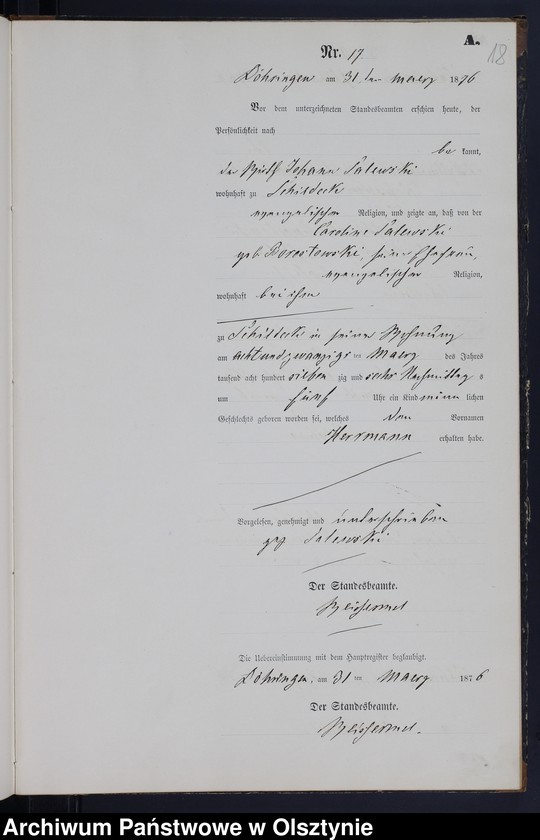 A.
18
Nr. 17
Döhringen am 31 ten Maerz 1876
Vor dem unterzeichneten Standesbeamten erschien heute, der
Persönlichkeit nach
be kannt,
der Wirth Johann Salewski
wohnhaft zu Schildeck
evangelischer Religion, und zeigte an, daß von der
Caroline Salewski
geb Dorostowski, seiner Ehefrau,
evangelischer Religion,
wohnhaft bei ihm
zu Schildeck in seiner Wohnung
am acht und zwanzigs ten Maerz des Jahres
tausend acht hundert sieben zig und sechs Nachmittag s
um fünf Uhr ein Kind männ lichen
Geschlechts geboren worden sei, welches den Vornamen
Herrmann erhalten habe.
Vorgelesen, genehmigt und unterschrieben
gez Salewski
Der Standesbeamte.
Die Uebereinstimmung mit dem Hauptregister beglaubigt.
Döhringen, am 31 ten Maerz 1876
Der Standesbeamte.
Archiwum Państwowe w Olsztynie